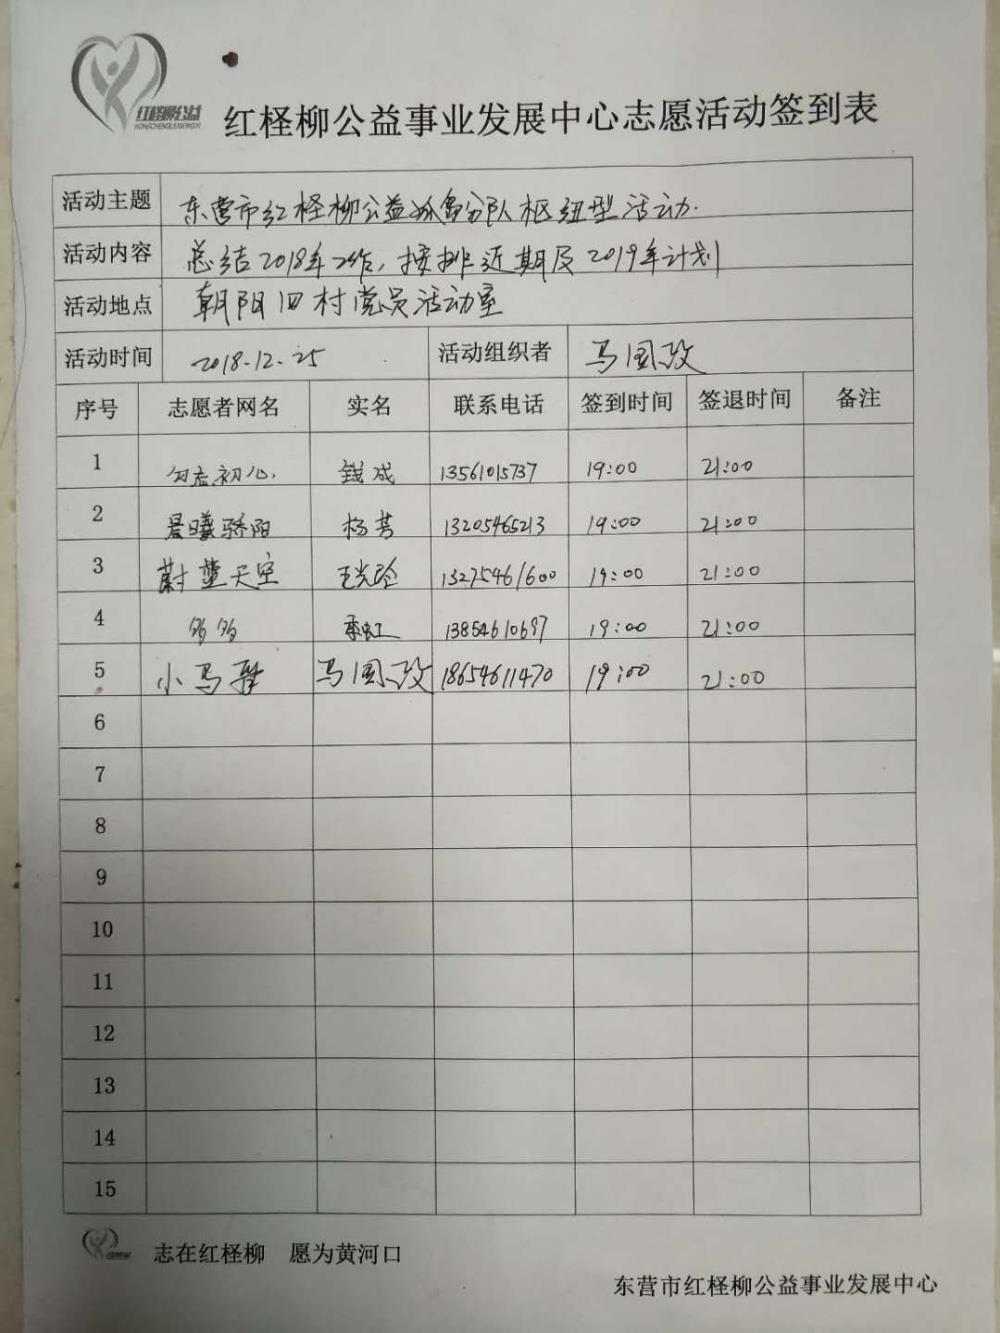 红柽柳公益
HONGCHENGLIUGONGYI
红柽柳公益事业发展中心志愿活动签到表
活动主题 东营市红柽柳公益分队枢纽型活动.
活动内容 总结2018年工作,按排近期及2019年计划
活动地点 朝阳旧村党员活动室
活动时间 2018.12.25 活动组织者 马国政
序号 志愿者网名 实名 联系电话 签到时间 签退时间 备注
1 勿忘初心. 钱成 13561015737 19:00 21:00
2 晨曦骄阳 杨芳 13205465213 19:00 21:00
3 蔚蓝天空 13275461600 19:00 21:00
4 多多 13854610697 19:00 21:00
5 小马 马国政 18654611470 19:00 21:00
6
7
8
9
10
11
12
13
14
15
志在红柽柳 愿为黄河口
东营市红柽柳公益事业发展中心